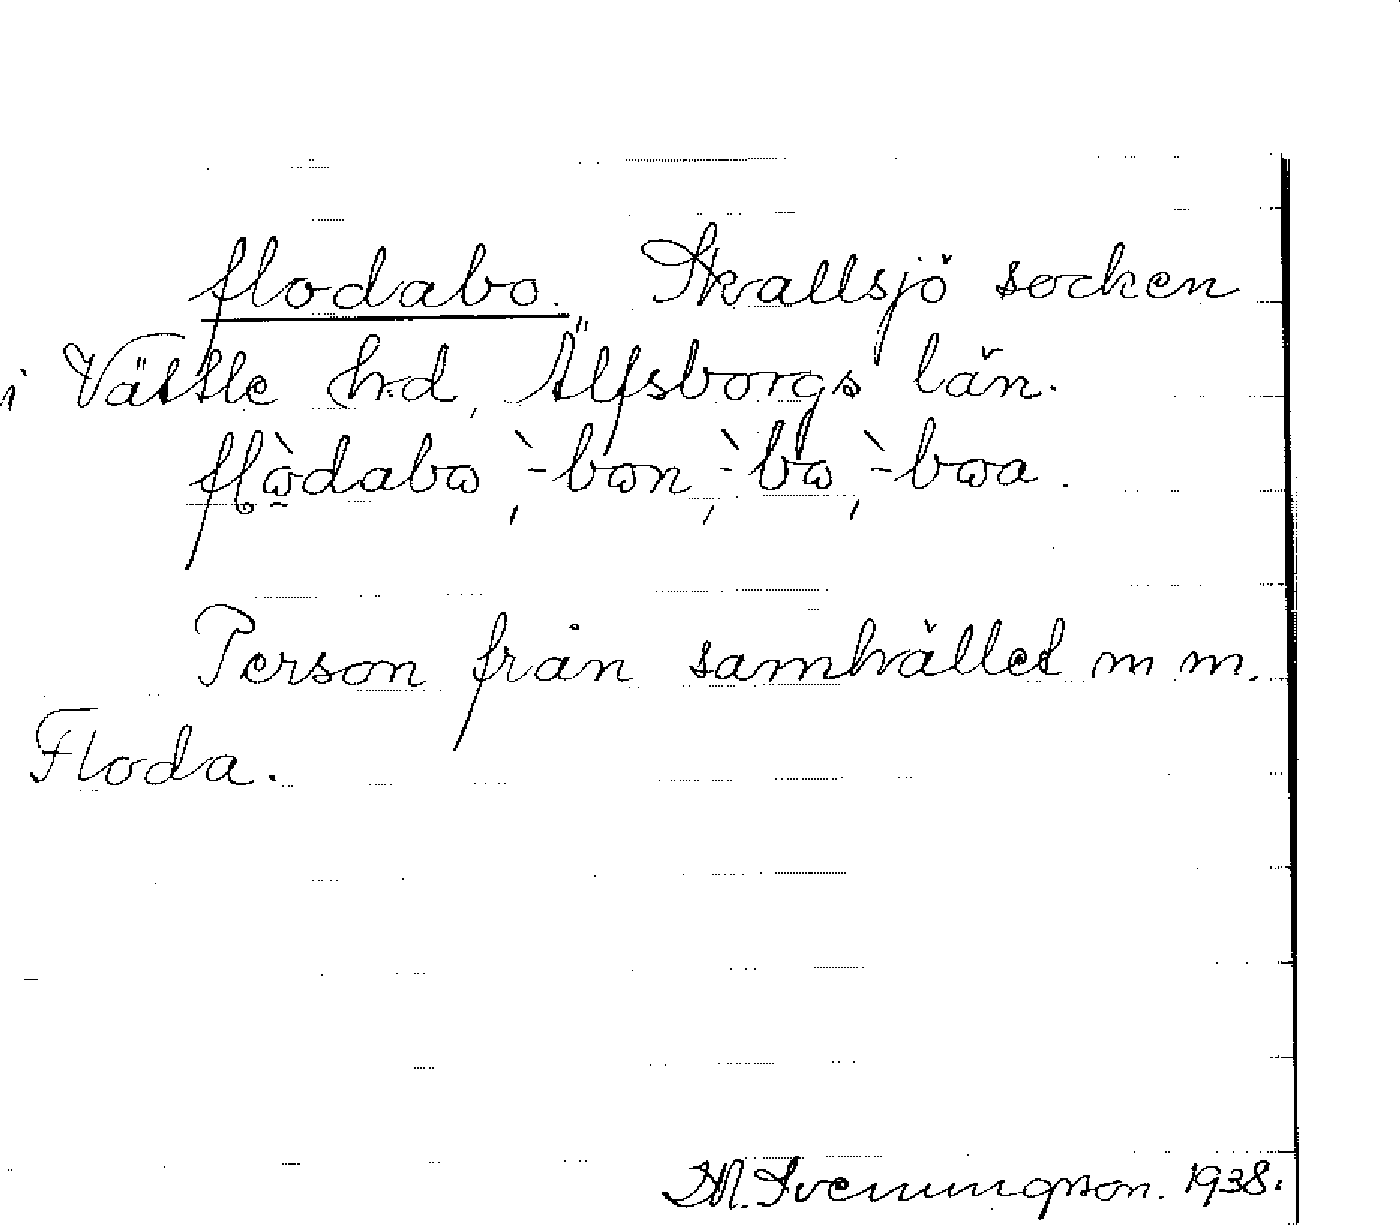 flodabo. Skallsjö socken
i Vättle hd, Älfsborgs län.
flὼdabω, `-bωn, `-bω, `-bωa.
Person från samhället m m.
Floda.
Svenungson. 1938.